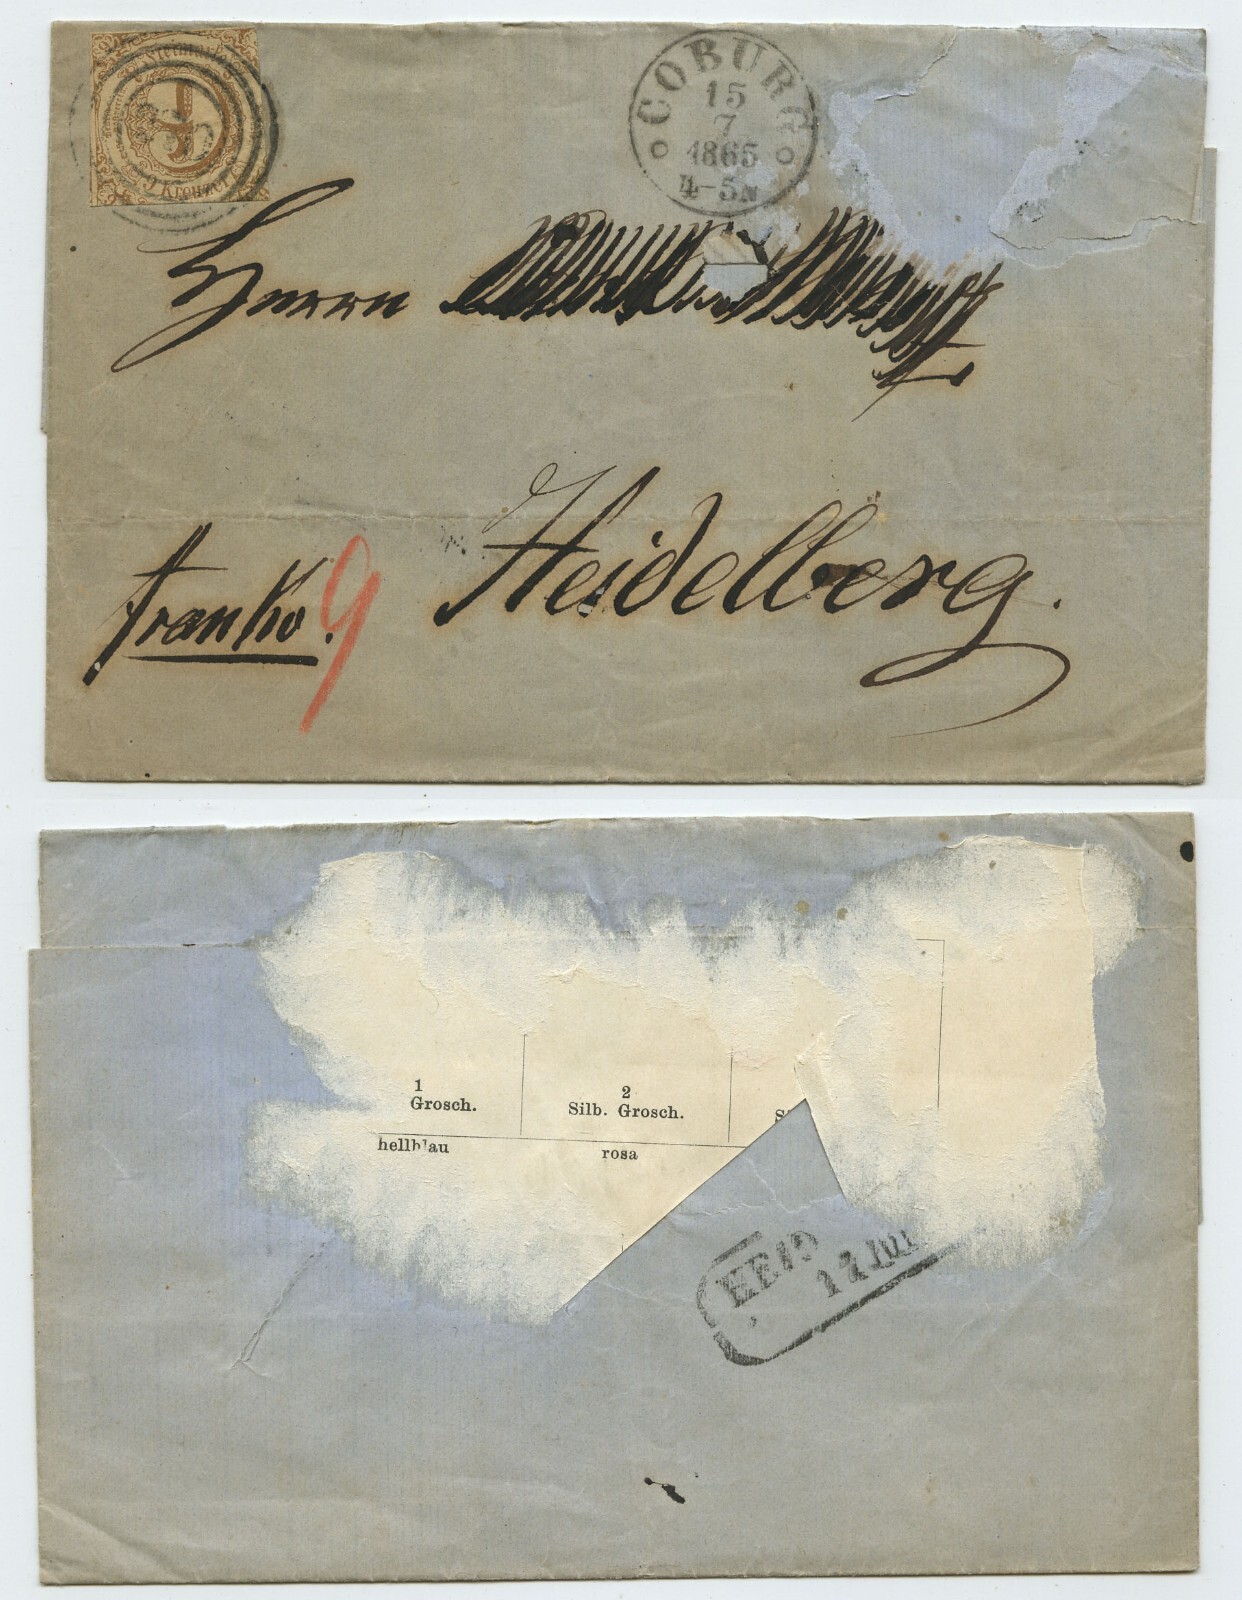 9 Kreuzer
COBURG
15
7
1865
4-5N
Herrn
Heidelberg.
Franko. 9
1
Grosch.
2
Silb. Grosch.
hellblau
rosa
HEID
Jul